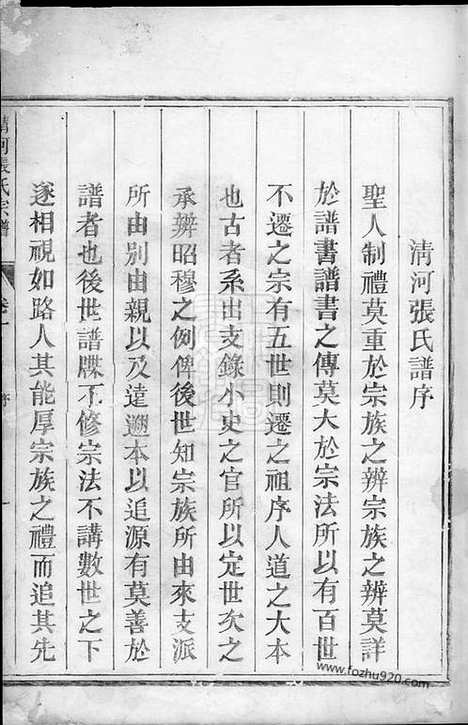 清河張氏譜序
聖人制禮莫重於宗族之辨宗族之辨莫詳
於譜書譜書之傳莫大於宗法所以有百世
不遷之宗有五世則遷之祖序人道之大本
也古者系出支錄小史之官所以定世次之
承辨昭穆之例俾後世知宗族所由來支派
所由别由親以及遠遡本以追源有莫善於
譜者也後世譜牒不修宗法不講數世之下
逐相視如路人其能厚宗族之禮而追其先
清河張氏宗譜
卷一
序
一
www.fozhu920.com